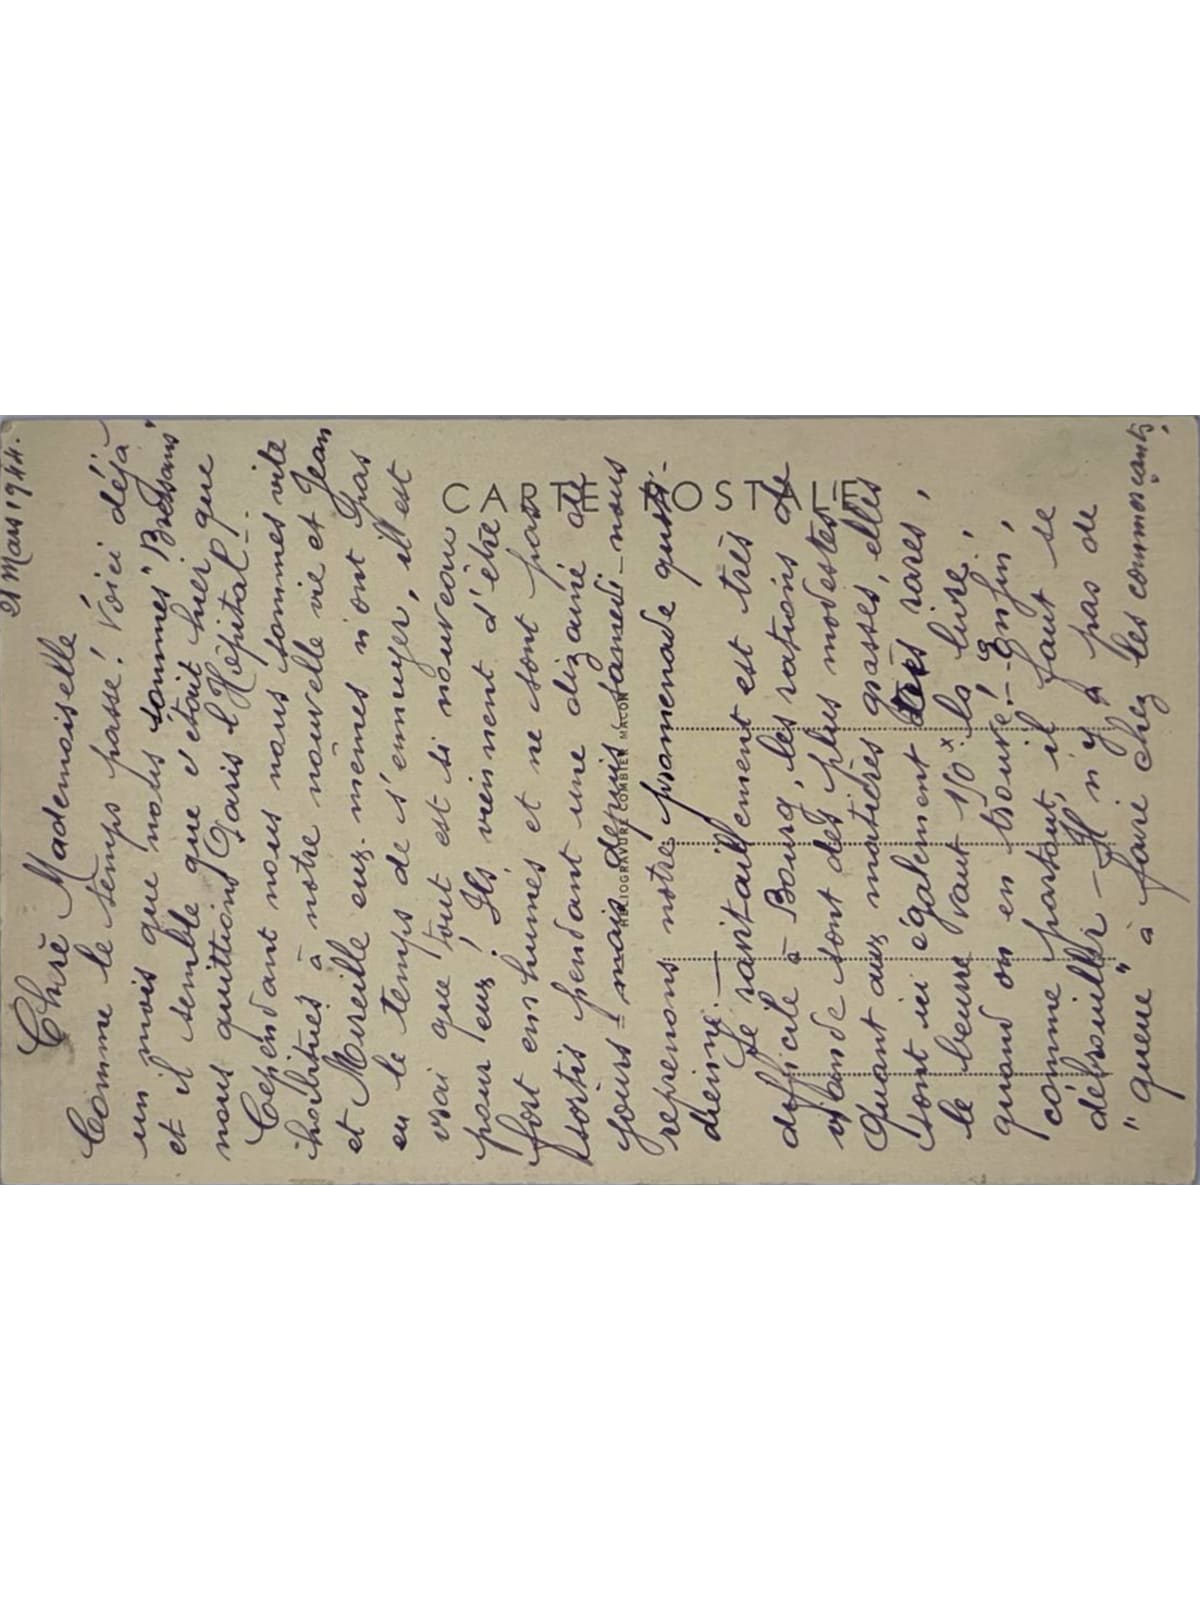 21 Mars 1944.
Chère Mademoiselle
Comme le temps passe! Voici déjà
un mois que nous sommes "Bressans"
et il semble que c'était hier que
nous quittions Paris l'Hôpital.
Cependant nous nous sommes vite
habitués à notre nouvelle vie et Jean
et Mireille eux-mêmes n'ont pas
eu le temps de s'ennuyer, il est
vrai que tout est si nouveau
pour eux! Ils viennent d'être
fort enrhumés et ne sont pas
sortis pendant une dizaine de
jours - mais depuis samedi - nous
reprenons notre promenade quoti-
dienne. -
Le ravitaillement est très
difficile à Bourg, les rations de
viande sont des plus modestes.
Quant aux matières grasses, elles
sont ici également très rares,
le beurre vaut 150 la livre!
quand on en trouve! - Enfin,
comme partout, il faut se
débrouiller - Il n'y a pas de
"queue" à faire chez les commerçants,
CARTE POSTALE
HÉLIOGRAVURE COMBIER MACON